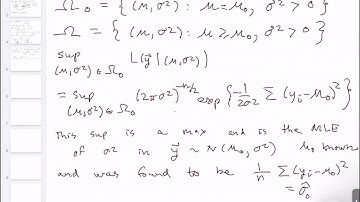 Ω₀ = { (μ, σ²) : μ = μ₀, σ² > 0 }
Ω = { (μ, σ²) : μ ≥ μ₀, σ² > 0 }
sup L(y⃗ | (μ, σ²))
(μ, σ²) ∈ Ω₀
= sup (2πσ²)^{-n/2} exp { -1/2σ² Σ (yᵢ - μ₀)² }
(μ, σ²) ∈ Ω₀
This sup is a max and is the MLE
of σ² in y⃗ ~ N(μ₀, σ²) μ₀ known
and was found to be 1/n Σ (yᵢ - μ₀)²
= σ̂₀²